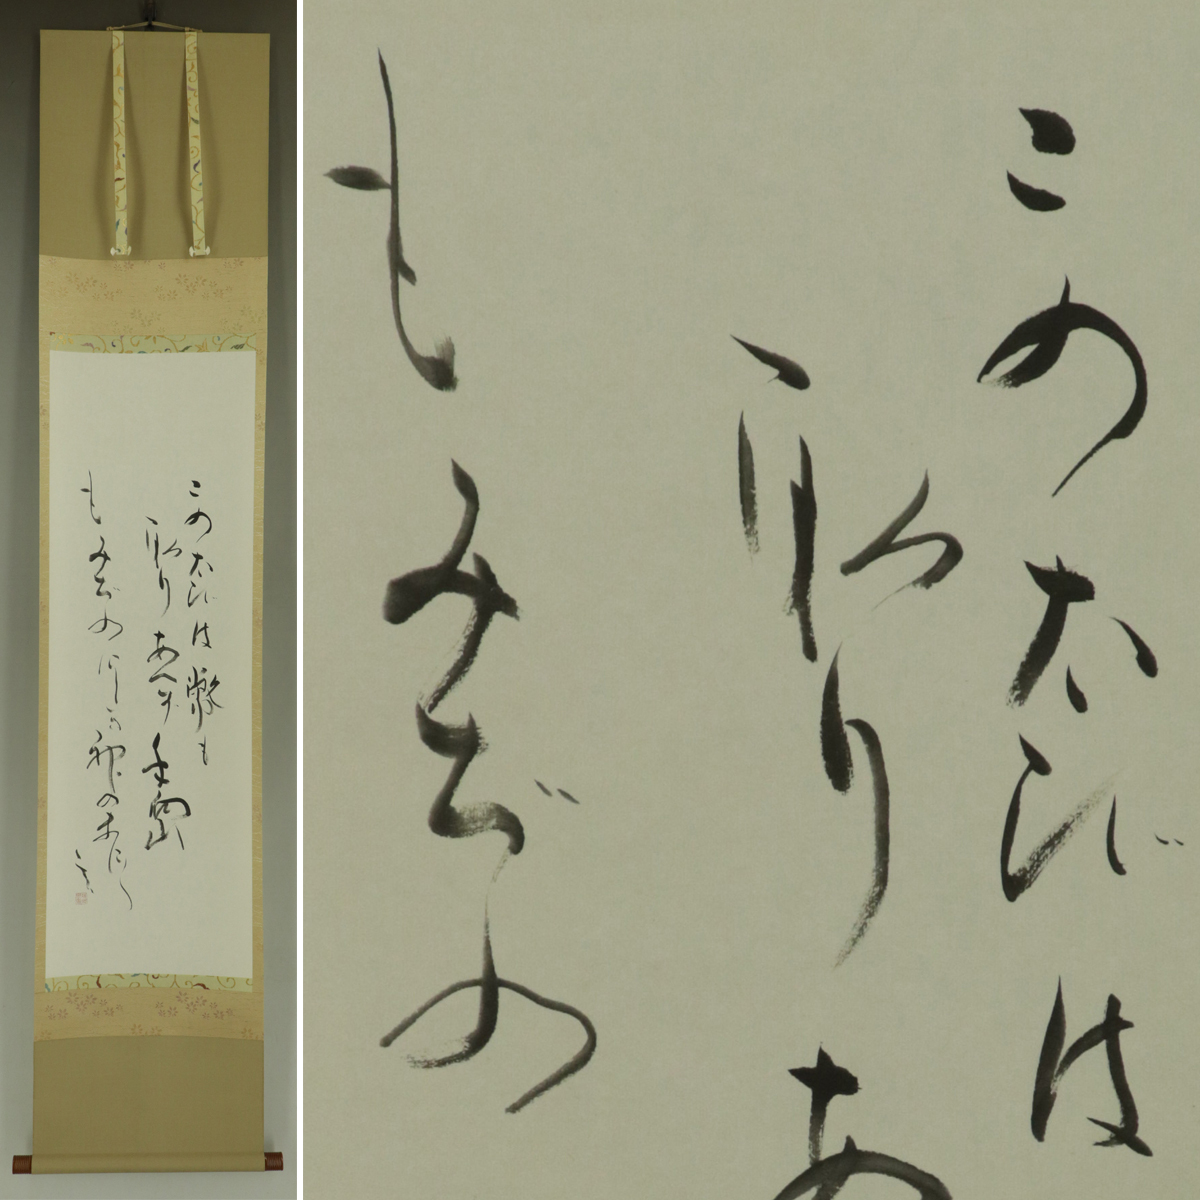 このたびは幣も
取りあへず手向山
もみぢのにしき神のまにまに
このたびは
取りあ
もみぢの